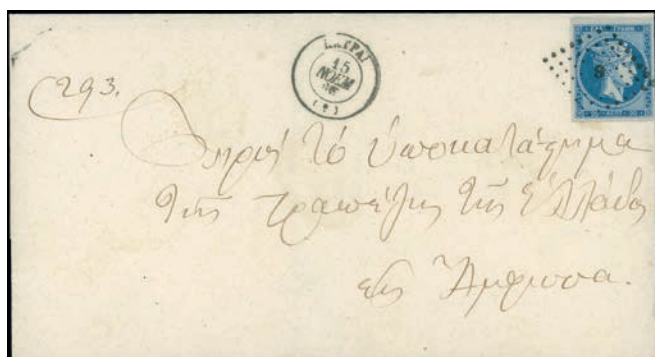 ΠΑΤΡΑΙ
15
ΝΟΕΜ
(9)
9
293.
Πρὸς τὸ ὑποκατάστημα
τῆς τραπέζης τῆς Ἑλλάδος
εἰς Ἄμφισσα.